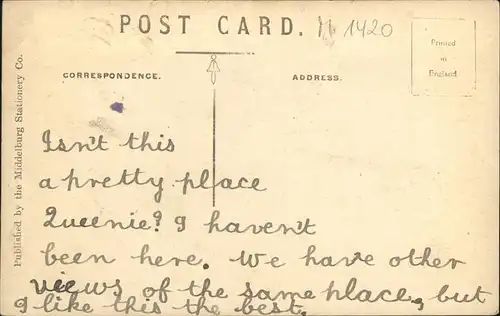 POST CARD. M 1420
Printed
in
England
CORRESPONDENCE. ADDRESS.
Published by the Middelburg Stationery Co.
Isn't this
a pretty place
Queenie? I haven't
been here. We have other
views of the same place, but
I like this the best.